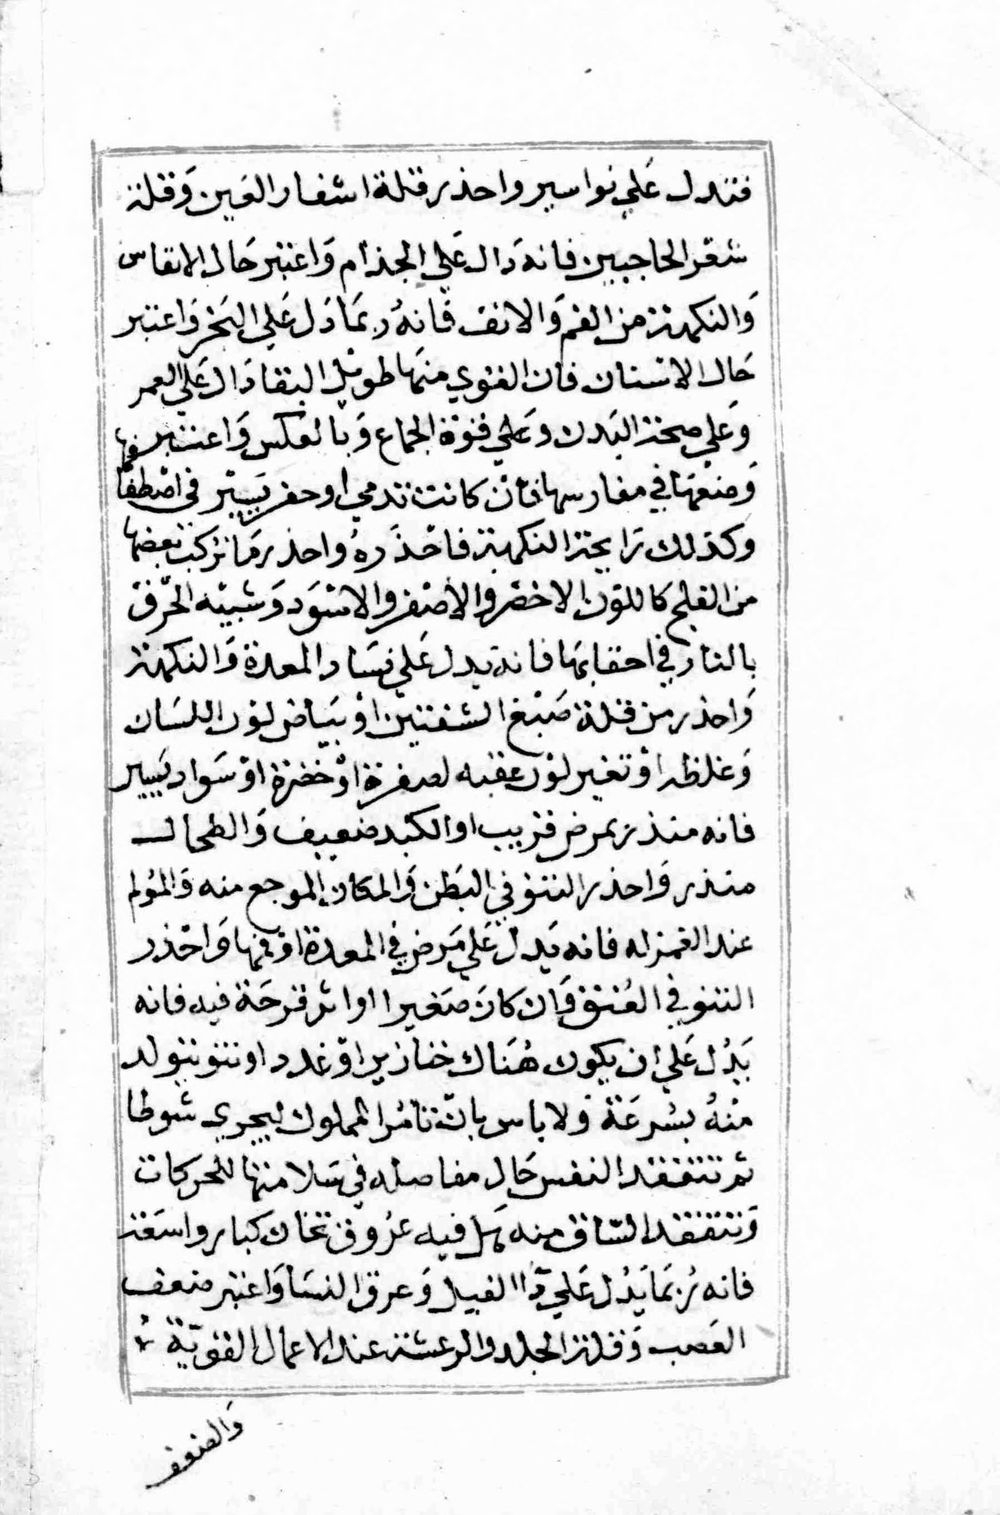 فتدل علي نواسير واحذر قلة اشفار العين وقلة
شعر الحاجبين فانه دال علي الجذام واعتبر حال الانفاس
والنكهة من الفم والانف فانه ربما دل علي البخر واعتبر
حال الاسنان فان القوي منها طويل البقا دال علي العمر
وعلي صحة البدن وعلي قوة الجماع وبالعكس واعتبر قوتها
وضعفها في مغارسها فان كانت تدمي او حفر يسير في اصطفا
وكذلك رايحة النكهة فاحذره واحذر ما تركب بعضها
من القلح كاللون الاخضر والاصفر والاسود وشبيه الحرق
بالنار في احقابها فانه يدل علي فساد المعدة والنكهة
واحذر من قلة صبغ الشفتين او بياض لون اللسان
وغلظه او تغير لون عقبه لصفرة او خضرة او سواد يسير
فانه منذر بمرض قريب او الكبد ضعيف والطحال
منذر واحذر النتو في البطن والمكان الموجع منه والمولم
عند الغمز له فانه يدل علي مرض في المعدة او فمها واحذر
النتو في العنق وان كان صغيرا او اثر قرحة فيه فانه
يدل علي ان يكون هناك خنازير او غدد او نتو يتولد
منه بسرعة ولا باس بان تامر المملوك ليجري شوطا
ثم تتفقد النفس حال مفاصله في سلامتها للحركات
وتتفقد الساق منه هل فيه عروق تخان كبار واسعة
فانه ربما يدل علي دا الفيل وعرق النسا واعتبر ضعف
العصب وقلة الجلد والرعشة عند الاعمال القوية
والضعف